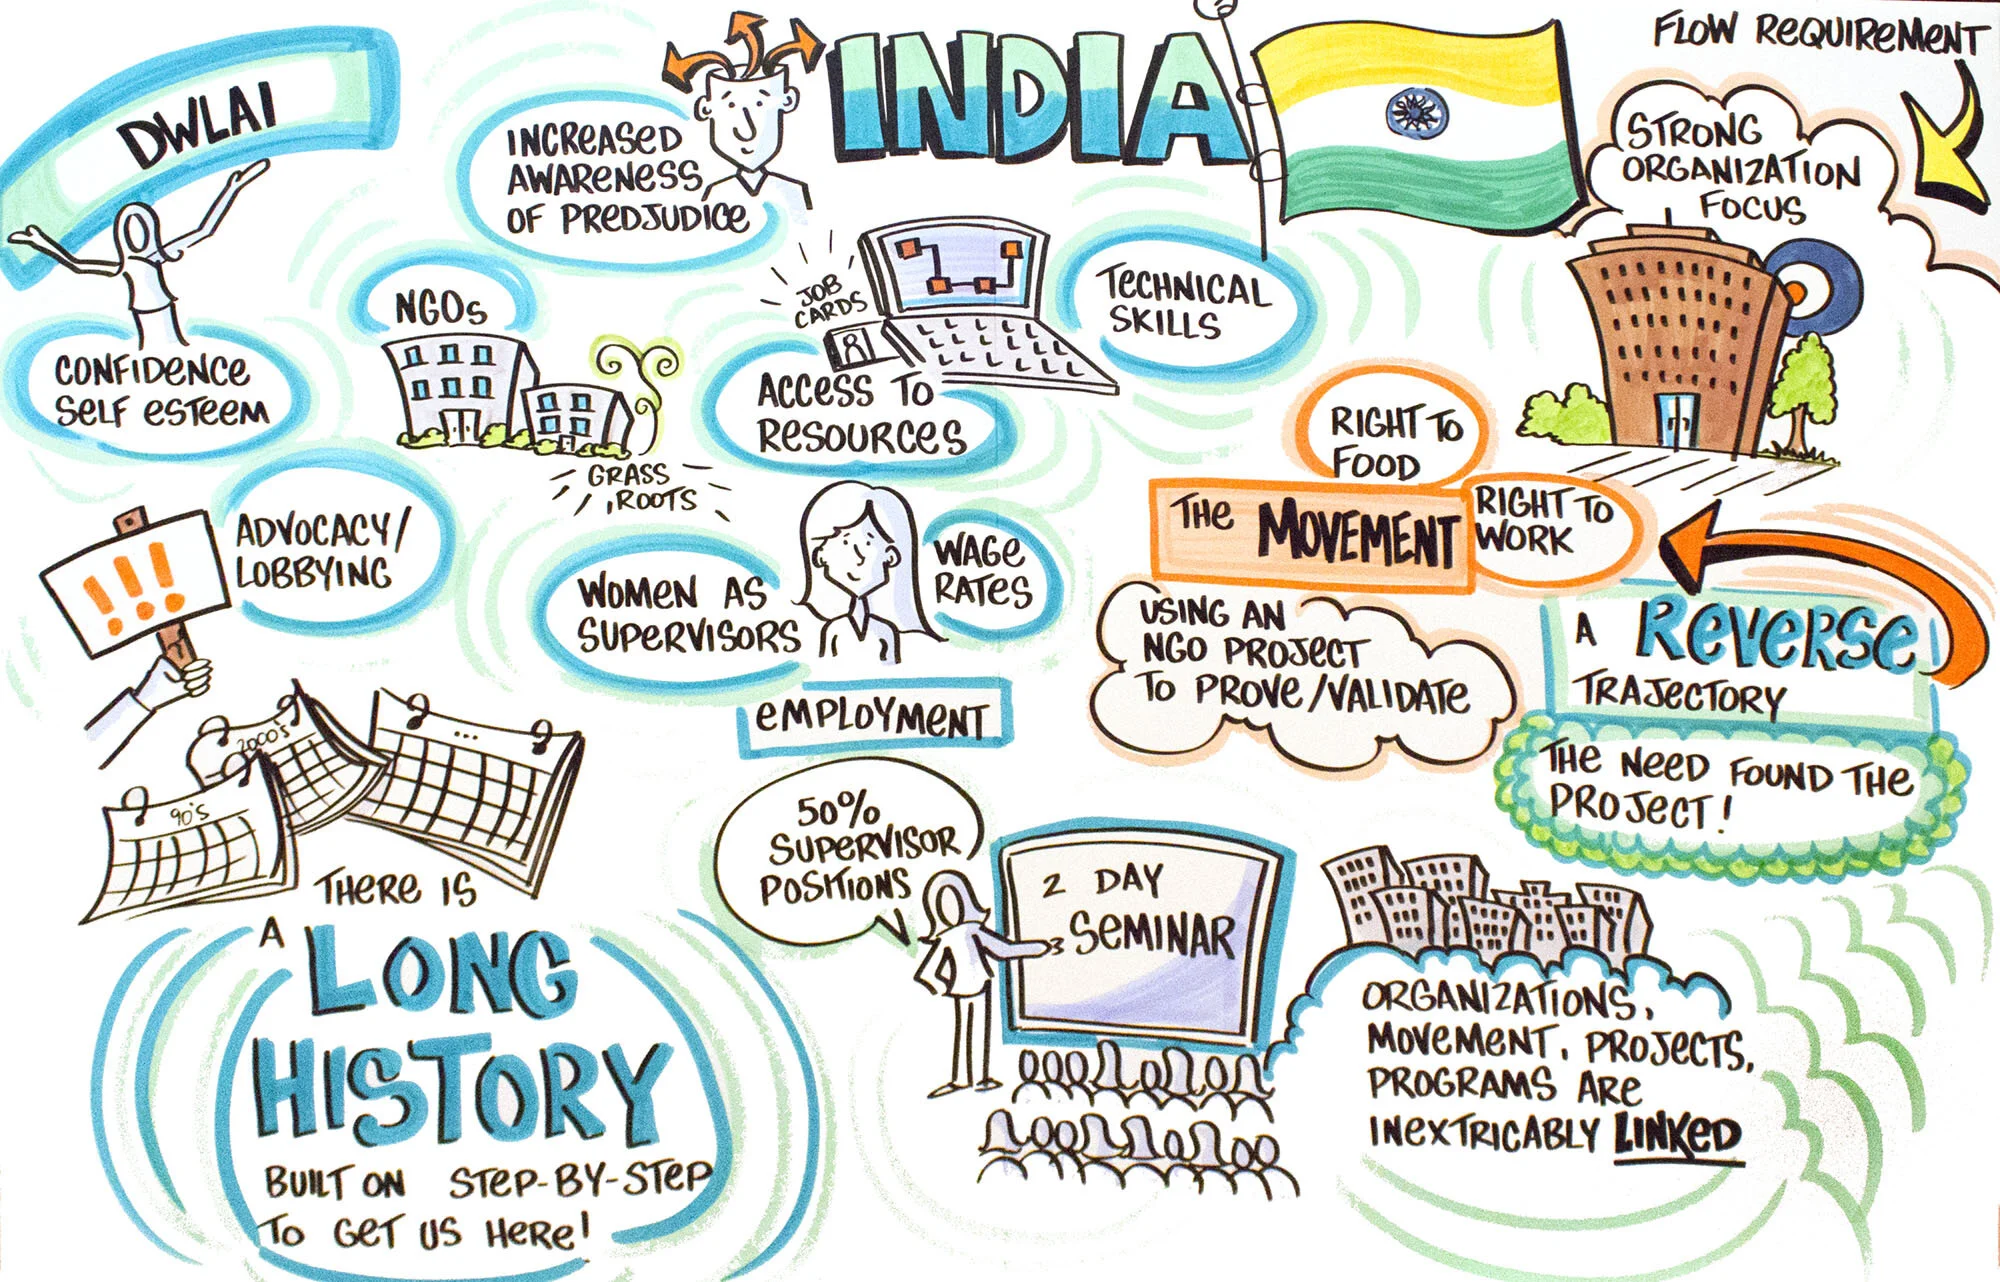 DWLAI
INCREASED
AWARENESS
OF PREDJUDICE
INDIA
FLOW REQUIREMENT
STRONG
ORGANIZATION
FOCUS
CONFIDENCE
SELF ESTEEM
NGOs
GRASS
ROOTS
JOB
CARDS
ACCESS TO
RESOURCES
TECHNICAL
SKILLS
RIGHT TO
FOOD
THE MOVEMENT
RIGHT TO
WORK
!!!
ADVOCACY/
LOBBYING
WOMEN AS
SUPERVISORS
WAGE
RATES
EMPLOYMENT
USING AN
NGO PROJECT
TO PROVE/VALIDATE
A REVERSE
TRAJECTORY
THE NEED FOUND THE
PROJECT!
90'S
2000'S
...
THERE IS
A LONG
HISTORY
BUILT ON STEP-BY-STEP
TO GET US HERE!
50%
SUPERVISOR
POSITIONS
2 DAY
SEMINAR
ORGANIZATIONS,
MOVEMENT, PROJECTS,
PROGRAMS ARE
INEXTRICABLY LINKED